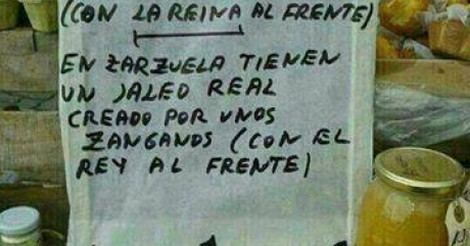 (CON LA REINA AL FRENTE)
EN ZARZUELA TIENEN
UN JALEO REAL
CREADO POR UNOS
ZANGANOS (CON EL
REY AL FRENTE)